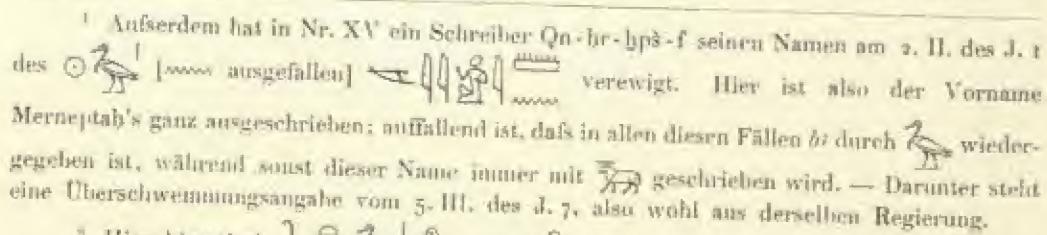 ¹ Aufserdem hat in Nr. XV ein Schreiber Qn-ḥr-ḫpš-f seinen Namen am 2. II. des J. 1
des [ ausgefallen] verewigt. Hier ist also der Vorname
Merneptah's ganz ausgeschrieben; auffallend ist, dafs in allen diesen Fällen bꜣ durch wieder-
gegeben ist, während sonst dieser Name immer mit geschrieben wird. — Darunter steht
eine Überschwemmungsangabe vom 5. III. des J. 7, also wohl aus derselben Regierung.